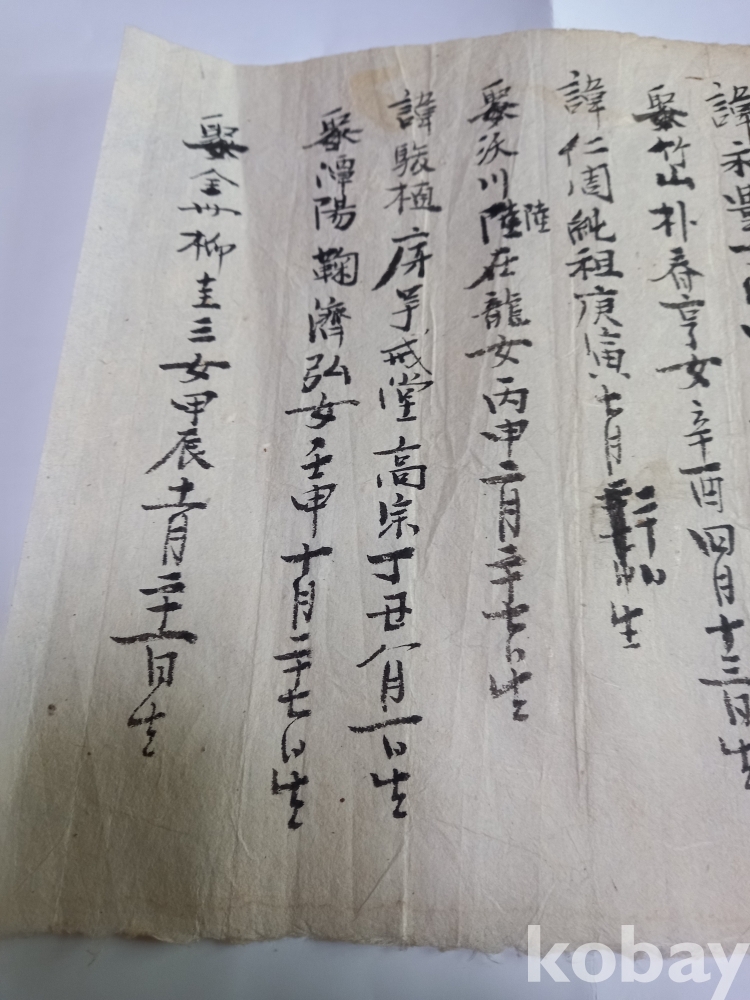 諱永豊
娶竹山朴春亨女辛酉四月十三日生
諱仁周純祖庚寅七月二十日生
娶沃川陸在龍女丙申二月二十七日生
陸
諱駿植 戒堂高宗丁丑八月一日生
娶潭陽鞠濟弘女壬申十月二十七日生
娶全州柳圭三女甲辰十一月二十一日生
kobay